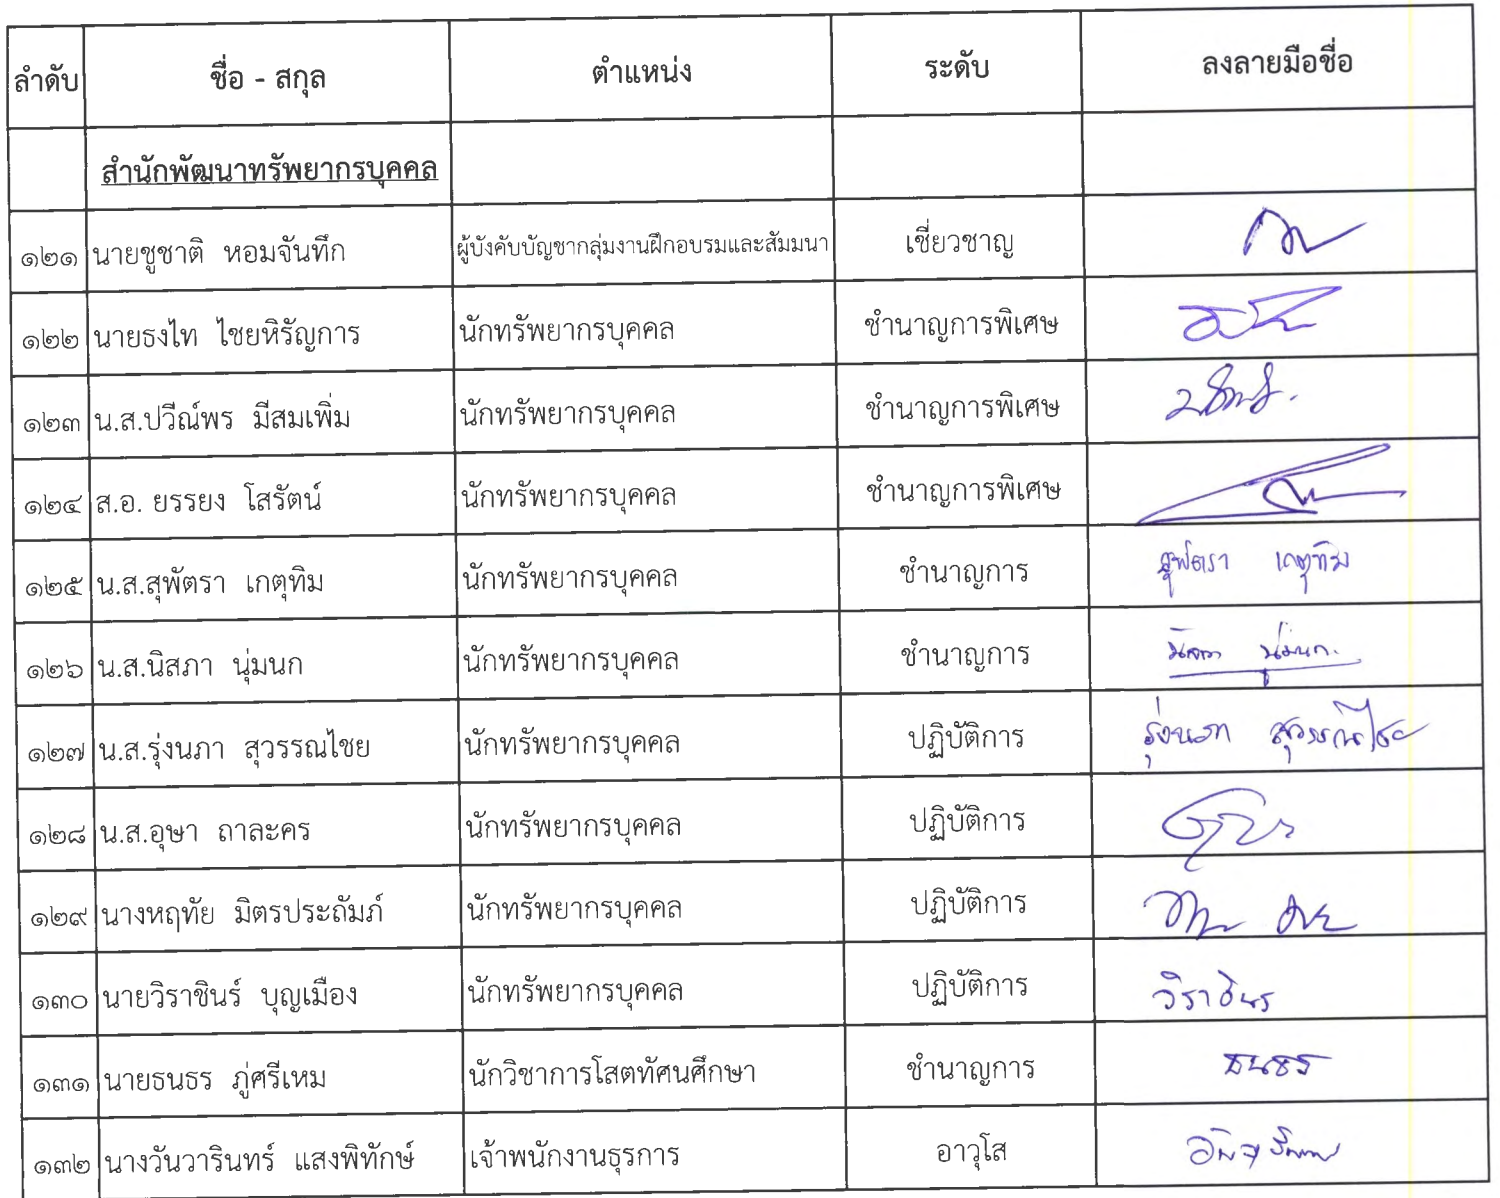 ลำดับ ชื่อ - สกุล ตำแหน่ง ระดับ ลงลายมือชื่อ
สำนักพัฒนาทรัพยากรบุคคล
๑๒๑ นายชูชาติ หอมจันทึก ผู้บังคับบัญชากลุ่มงานฝึกอบรมและสัมมนา เชี่ยวชาญ
๑๒๒ นายธงไท ไชยหิรัญการ นักทรัพยากรบุคคล ชำนาญการพิเศษ
๑๒๓ น.ส.ปวีณ์พร มีสมเพิ่ม นักทรัพยากรบุคคล ชำนาญการพิเศษ
๑๒๔ ส.อ. ยรรยง โสรัตน์ นักทรัพยากรบุคคล ชำนาญการพิเศษ
๑๒๕ น.ส.สุพัตรา เกตุทิม นักทรัพยากรบุคคล ชำนาญการ สุพัตรา เกตุทิม
๑๒๖ น.ส.นิสภา นุ่มนก นักทรัพยากรบุคคล ชำนาญการ นิสภา นุ่มนก
๑๒๗ น.ส.รุ่งนภา สุวรรณไชย นักทรัพยากรบุคคล ปฏิบัติการ รุ่งนภา สุวรรณไชย
๑๒๘ น.ส.อุษา ถาละคร นักทรัพยากรบุคคล ปฏิบัติการ
๑๒๙ นางหฤทัย มิตรประถัมภ์ นักทรัพยากรบุคคล ปฏิบัติการ
๑๓๐ นายวิราชินร์ บุญเมือง นักทรัพยากรบุคคล ปฏิบัติการ วิราชินร์
๑๓๑ นายธนธร ภู่ศรีเหม นักวิชาการโสตทัศนศึกษา ชำนาญการ ธนธร
๑๓๒ นางวันวารินทร์ แสงพิทักษ์ เจ้าพนักงานธุรการ อาวุโส